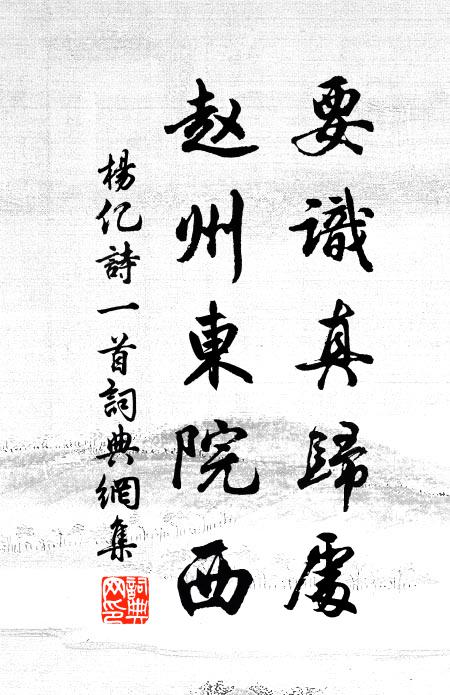 要識真歸處
赵州東院西
楊亿詩一首詞典網集
詞典
网印